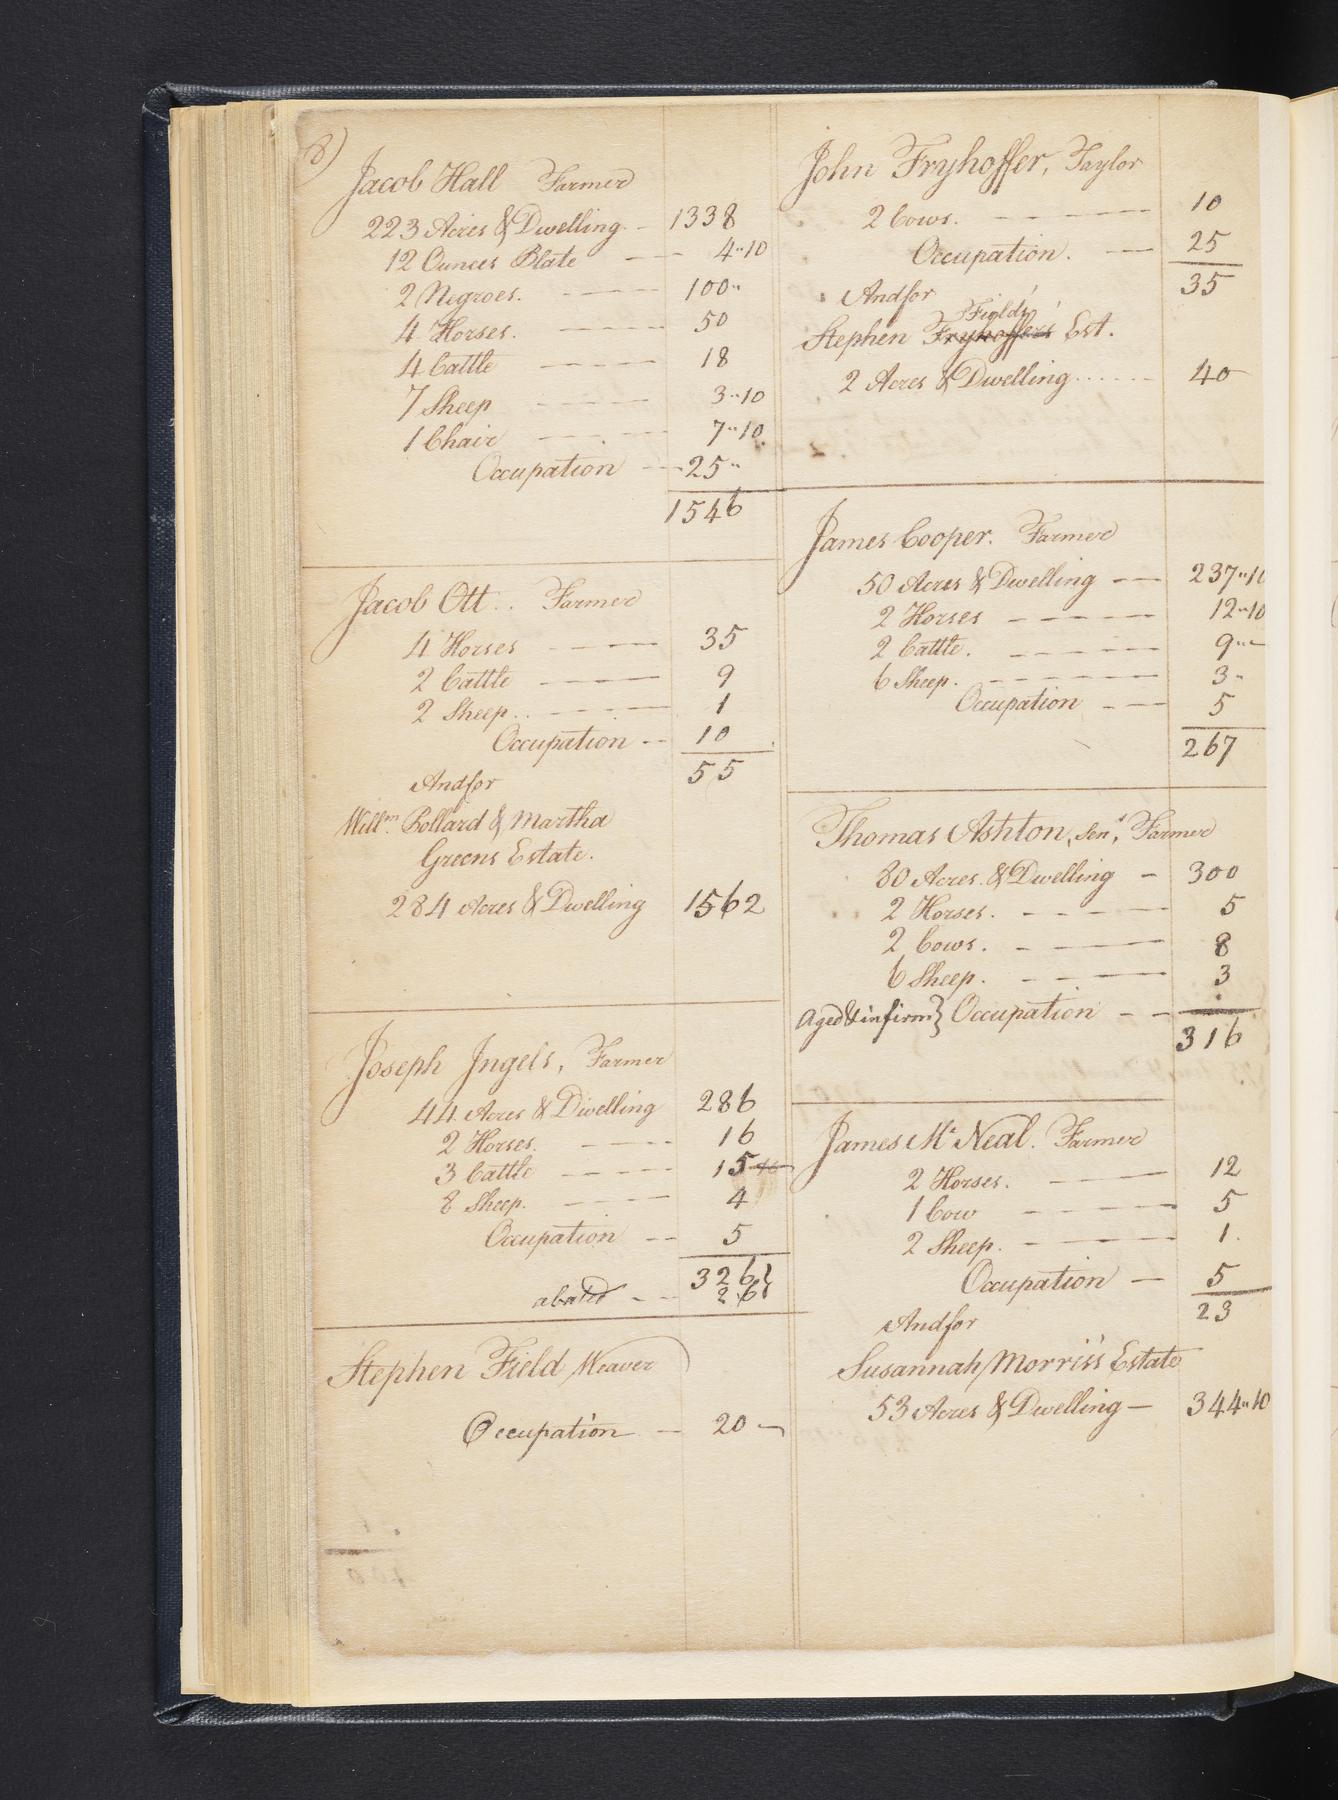 8)
Jacob Hall Farmer
223 Acres & Dwelling 1338
12 Ounces Plate 4"10
2 Negroes. 100"
4 Horses. 50
4 Cattle 18
7 Sheep 3"10
1 Chair 7"10
Occupation 25"
1546
Jacob Ott.. Farmer
4 Horses 35
2 Cattle 9
2 Sheep.. 1
Occupation 10
And for 55
Willm. Bollard & Martha
Greens Estate.
284 Acres & Dwelling 1562
Joseph Ingels, Farmer
44 Acres & Dwelling 286
2 Horses. 16
3 Cattle 15
8 Sheep. 4
Occupation 5
326
abated 26
Stephen Field Weaver
Occupation 20
John Fryhoffer, Taylor
2 Cows. 10
Occupation. 25
And for 35
Field's
Stephen Fryhoffers Est.
2 Acres & Dwelling 40
James Cooper. Farmer
50 Acres & Dwelling 237"10
2 Horses 12"10
2 Cattle. 9"
6 Sheep. 3"
Occupation 5
267
Thomas Ashton, Senr, Farmer
80 Acres. & Dwelling 300
2 Horses. 5
2 Cows. 8
6 Sheep. 3
Aged & infirm} Occupation
316
James Mc Neal. Farmer
2 Horses. 12
1 Cow 5
2 Sheep. 1.
Occupation 5
And for 23
Susannah Morris's Estate
53 Acres & Dwelling 344"10